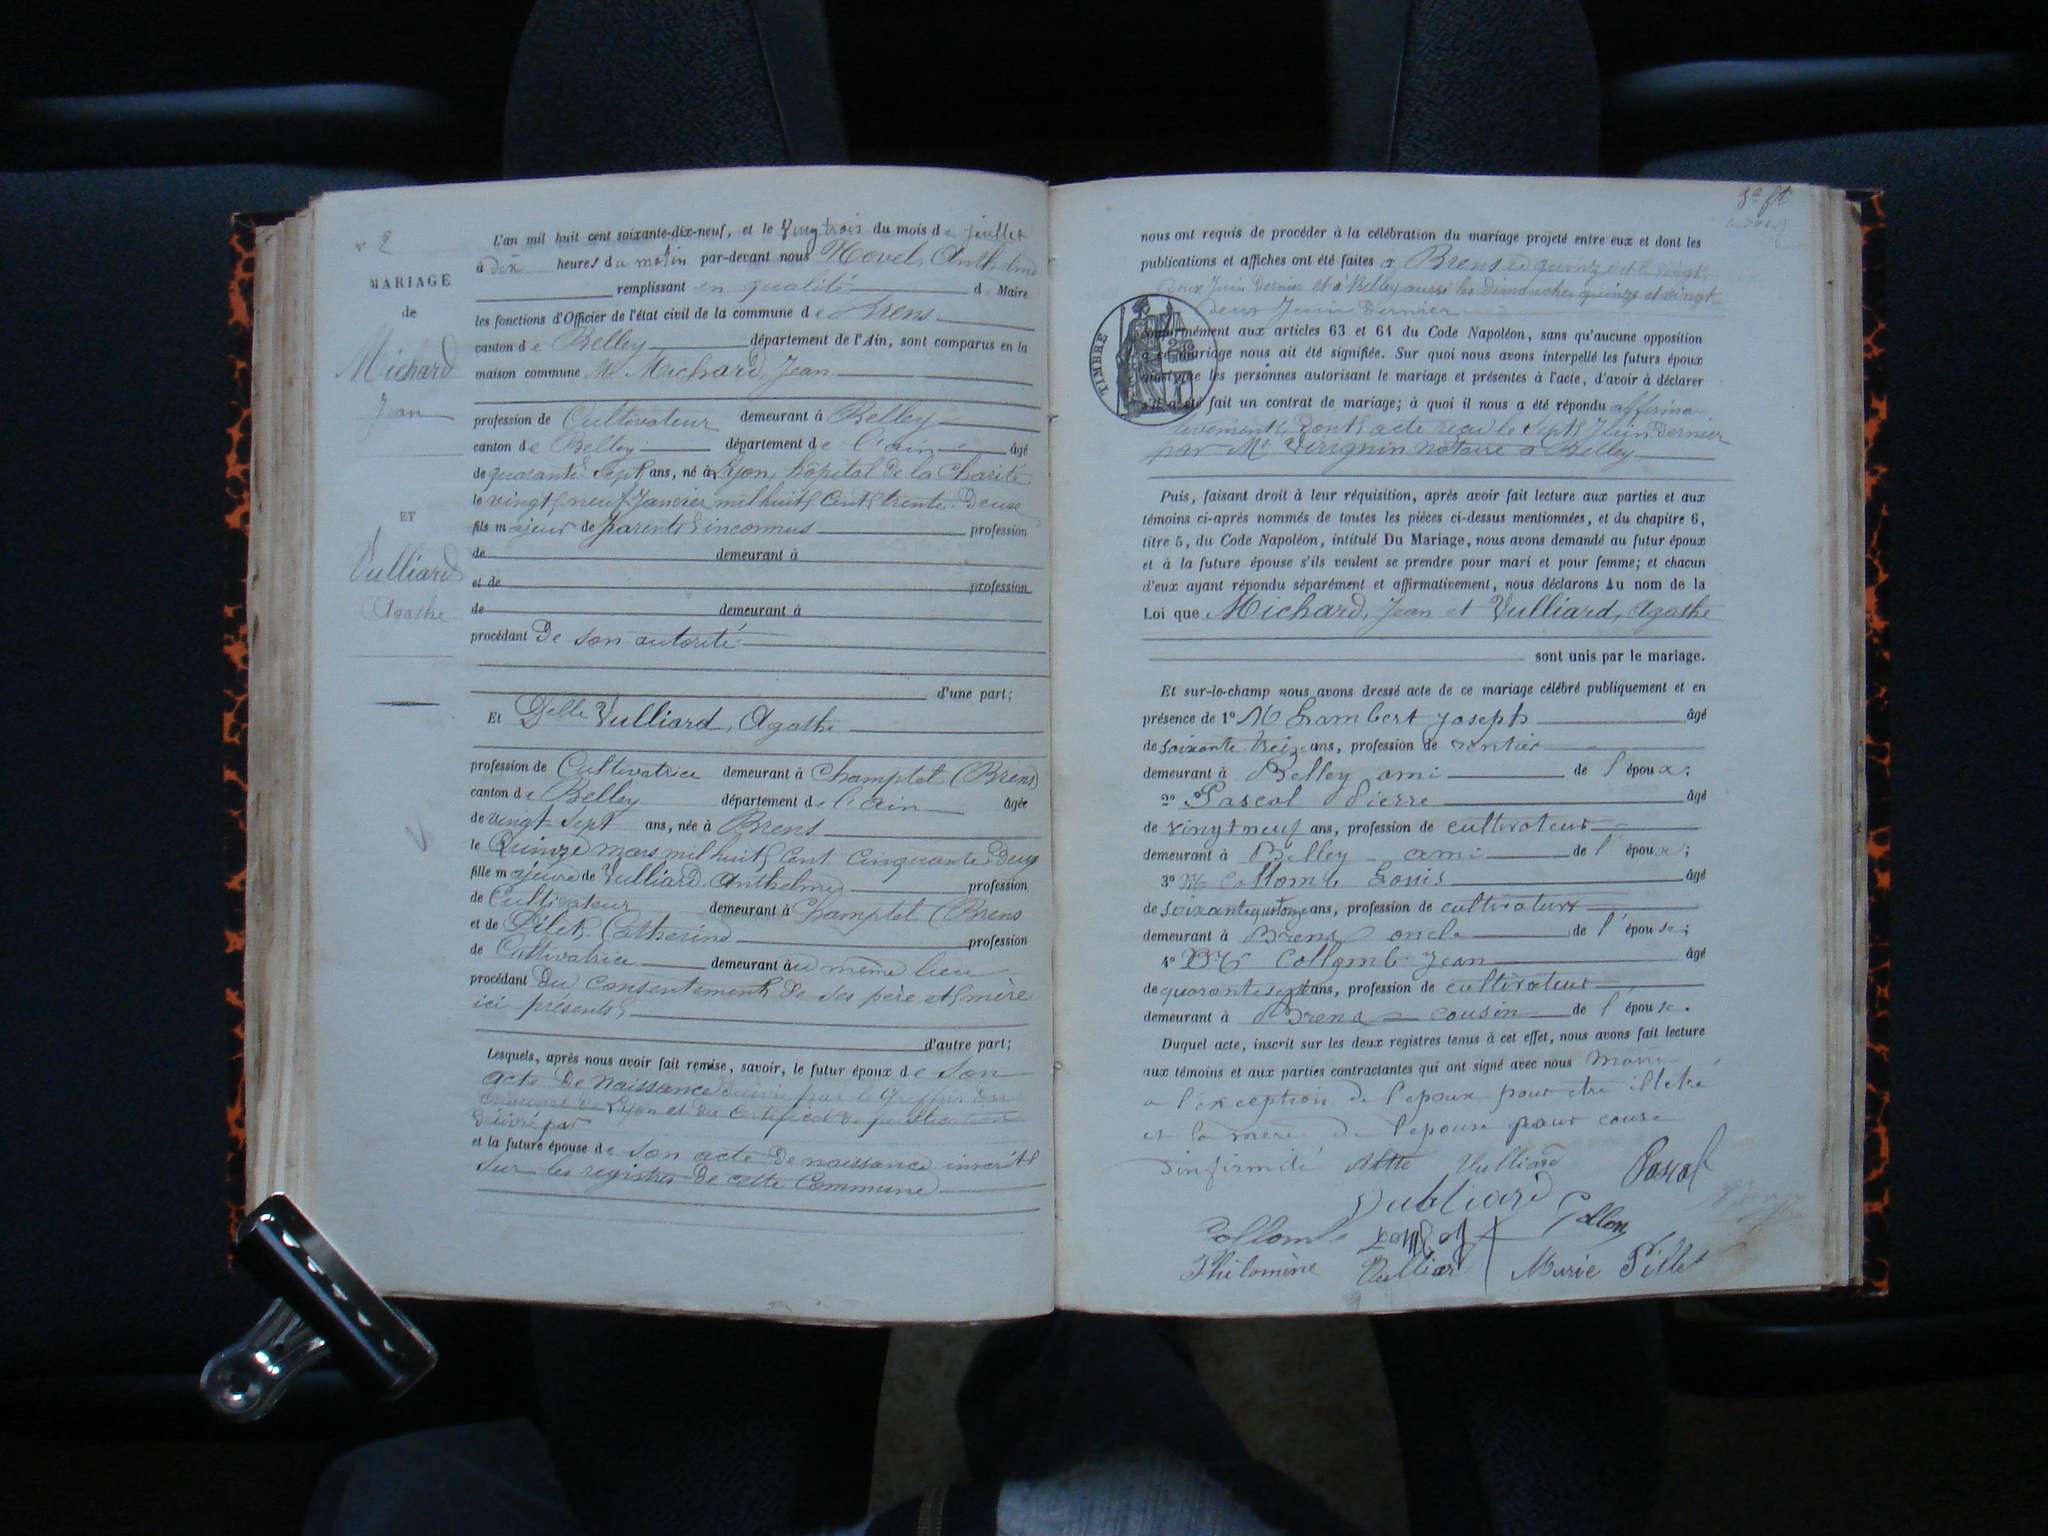 n 2
MARIAGE
de
Michard
Jean
ET
Vulliard
Agathe
L'an mil huit cent soixante-dix-neuf, et le Vingt trois du mois de juillet
à dix heures du matin par-devant nous Hovel, Anthelme
remplissant en qualité d. Maire
les fonctions d'Officier de l'état civil de la commune de Brens
canton de Belley département de l'Ain, sont comparus en la
maison commune Mr Michard, Jean
profession de Cultivateur demeurant à Belley
canton de Belley département de l'ain âgé
de quarante sept ans, né à Lyon, hôpital de la Charité
le vingt neuf Janvier mil huit Cent trente-Deux
fils majeur de parents inconnus profession
de demeurant à
et de profession
de demeurant à
procédant De son autorité
d'une part;
Et Delle Vulliard, Agathe
profession de Cultivatrice demeurant à Champtel (Brens)
canton de Belley département de l'ain âgée
de vingt-sept ans, née à Brens
le Quinze mars mil huit Cent Cinquante Deux
fille majeure de Vulliard, Anthelme profession
de Cultivateur demeurant à Champtel (Brens
et de Pilet Catherine profession
de Cultivatrice demeurant au même lieu
procédant Du Consentement De ses père et mère
ici présents
d'autre part;
Lesquels, après nous avoir fait remise, savoir, le futur époux de son
acte De Naissance Délivré par le Greffier Du
de Lyon et du Certificat de publication
Délivré par
et la future épouse de son acte De naissance inscrit
sur les registres De cette Commune
nous ont requis de procéder à la célébration du mariage projeté entre eux et dont les
publications et affiches ont été faites à Brens le quinze et le vingt
deux Juin Dernier et à Belley aussi les Dimanches quinze et vingt
deux Juin Dernier
TIMBRE
conformément aux articles 63 et 64 du Code Napoléon, sans qu'aucune opposition
à ce mariage nous ait été signifiée. Sur quoi nous avons interpellé les futurs époux
les personnes autorisant le mariage et présentes à l'acte, d'avoir à déclarer
s'il a été fait un contrat de mariage; à quoi il nous a été répondu affirma
tivement Dont acte reçu le sept Juin Dernier
par Me Virignin Notaire à Belley
Puis, faisant droit à leur réquisition, après avoir fait lecture aux parties et aux
témoins ci-après nommés de toutes les pièces ci-dessus mentionnées, et du chapitre 6,
titre 5, du Code Napoléon, intitulé Du Mariage, nous avons demandé au futur époux
et à la future épouse s'ils veulent se prendre pour mari et pour femme; et chacun
d'eux ayant répondu séparément et affirmativement, nous déclarons Au nom de la
Loi que Michard, Jean et Vulliard, Agathe
sont unis par le mariage.
Et sur-le-champ nous avons dressé acte de ce mariage célébré publiquement et en
présence de 1° M Lambert Joseph âgé
de soixante treize ans, profession de rentier
demeurant à Belley ami de l'époux;
2° Pascal Pierre âgé
de vingt neuf ans, profession de cultivateur
demeurant à Belley ami de l'époux;
3° Mr Collomb Louis âgé
de soixante quatorze ans, profession de cultivateur
demeurant à Brens oncle de l'épouse;
4° Mr Collomb Jean âgé
de quarante sept ans, profession de cultivateur
demeurant à Brens cousin de l'épouse.
Duquel acte, inscrit sur les deux registres tenus à cet effet, nous avons fait lecture
aux témoins et aux parties contractantes qui ont signé avec nous Maire
a l'exception de l'epoux pour etre illetré
et la mère de l'epouse pour cause
d'infirmité Vulliard Pascal
Vulliard
Collomb
Philomène Vulliard Marie Pillet